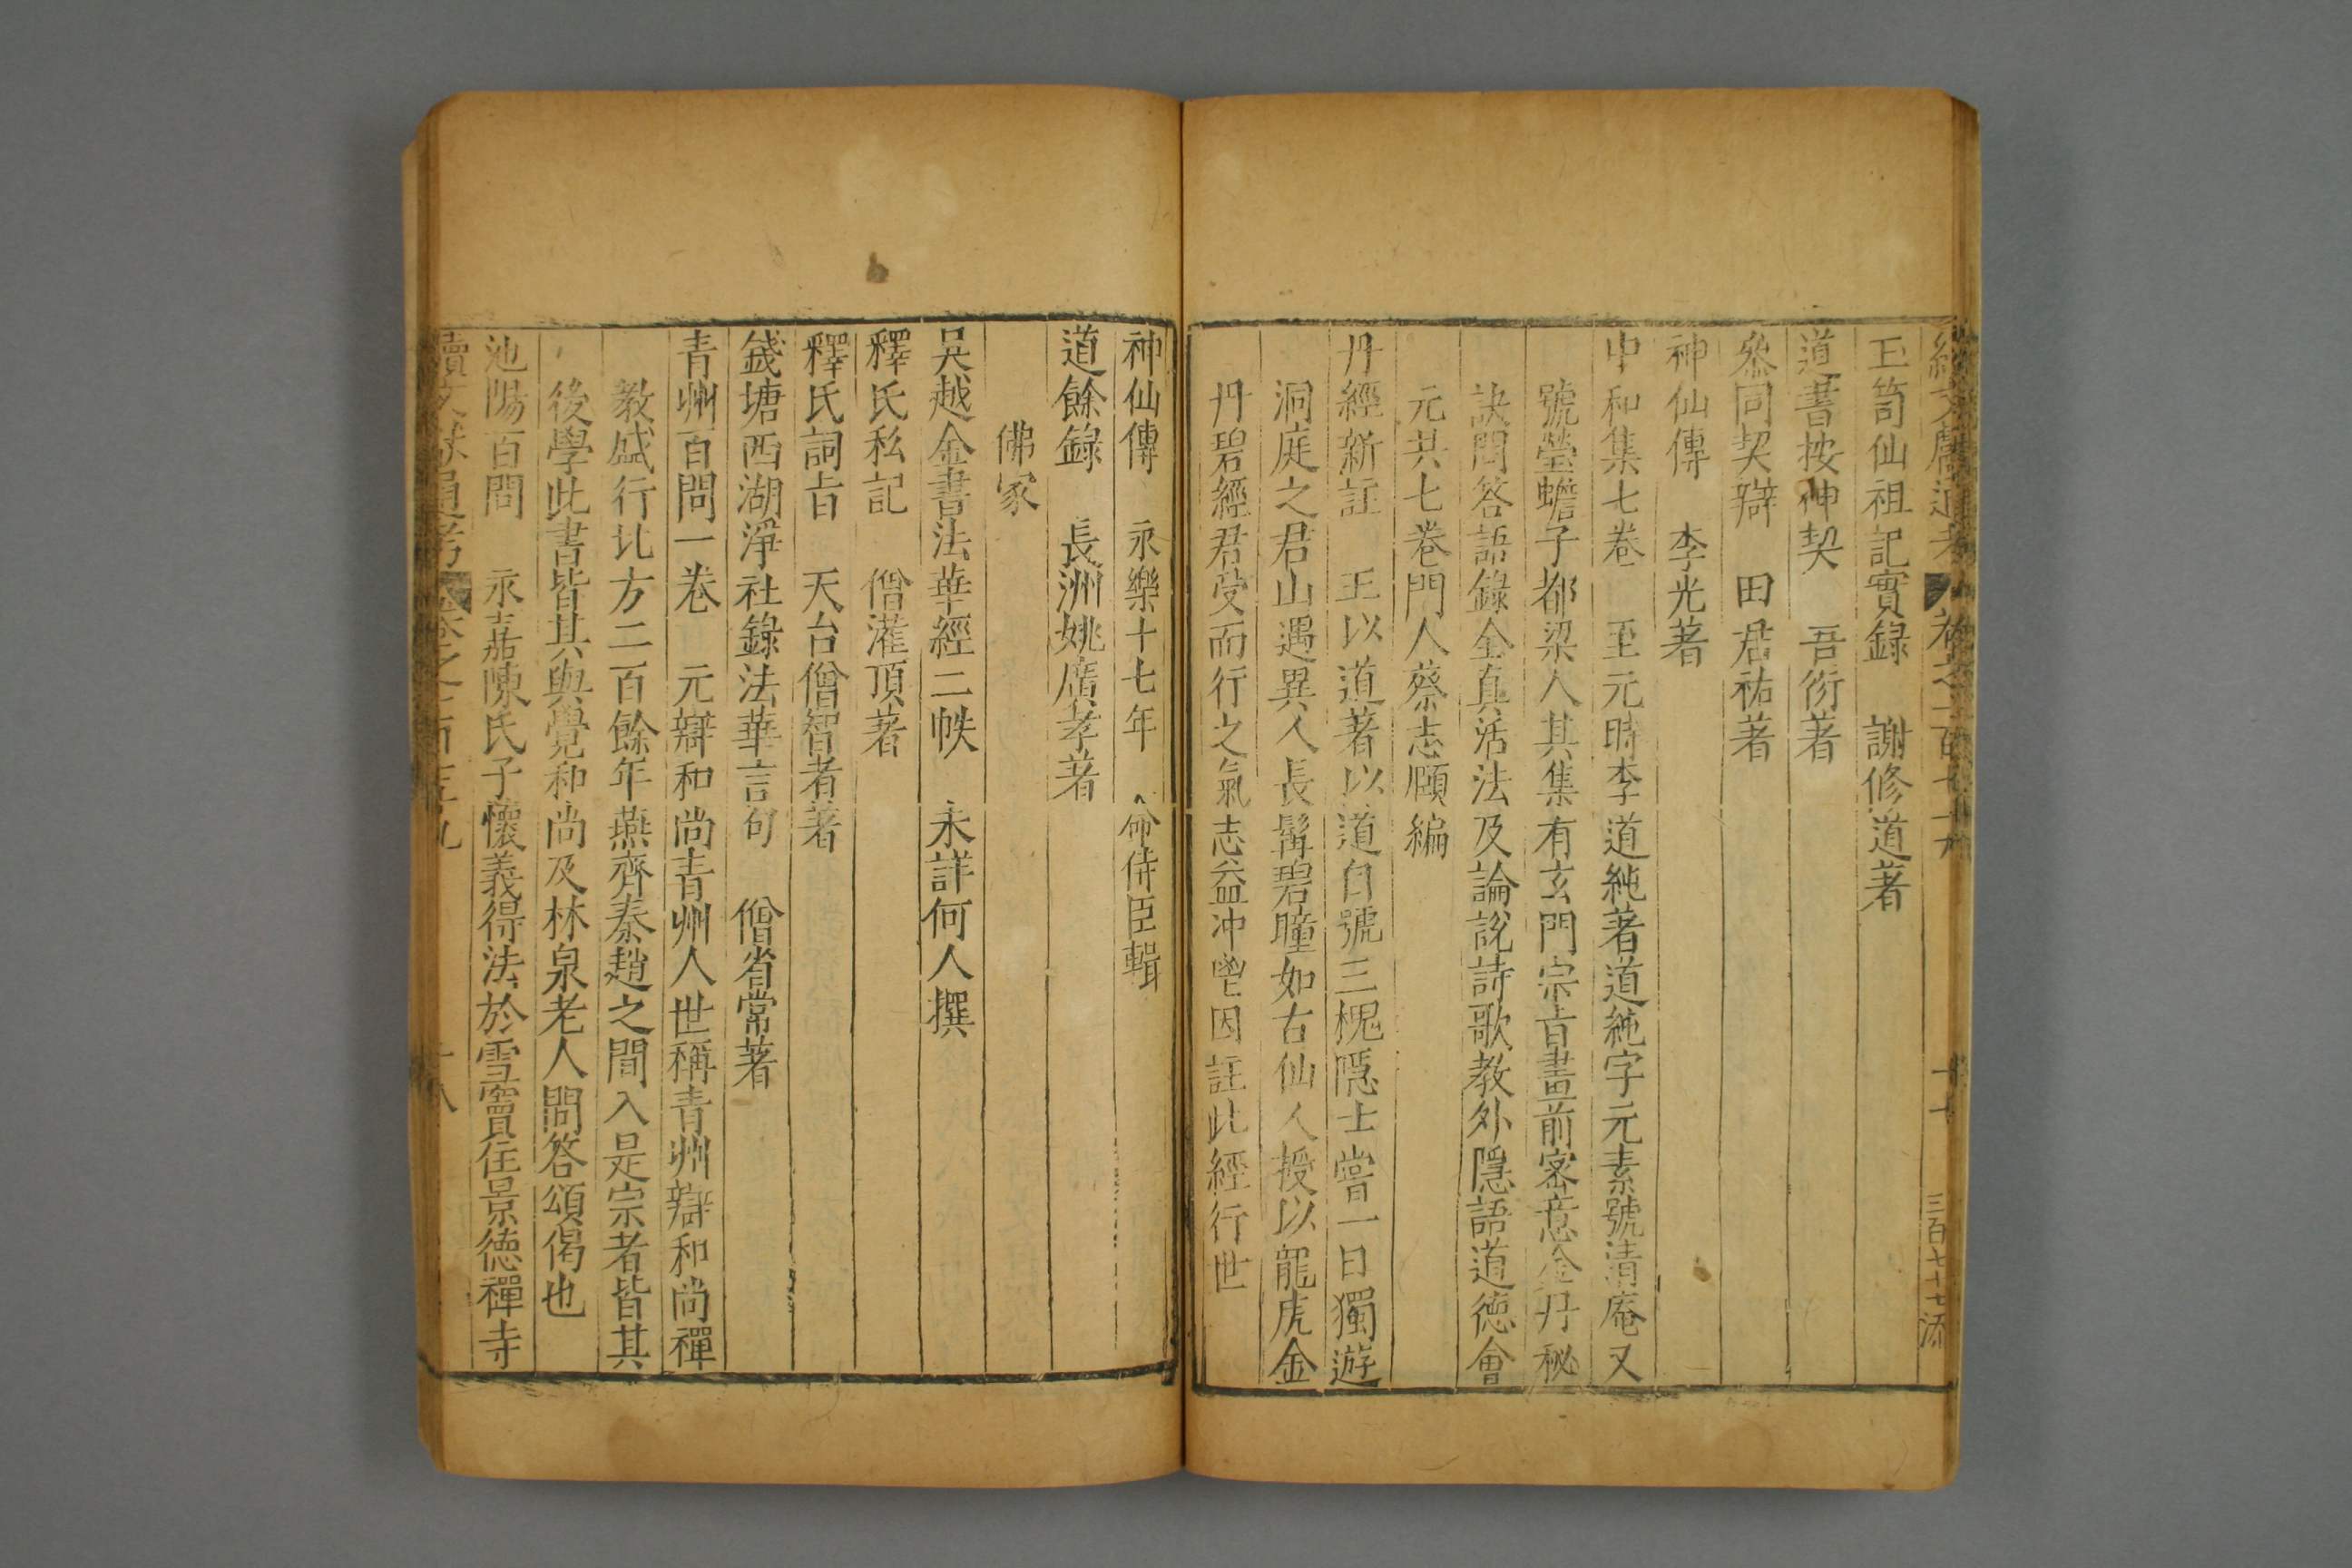 續文獻通考 卷之一百七十九 十七 三百七十七 添
玉笥仙祖記實録 謝修道著
道書按神契 吾衍著
叅同契辯 田君祐著
神仙傳 李光著
中和集七卷 至元時李道純著道純字元素號清庵又
號瑩蟾子都梁人其集有玄門宗旨畫前密意金丹秘
訣問答語錄全真活法及論說詩歌教外隱語道德會
元共七卷門人蔡志頤編
丹經新註 王以道著以道自號三槐隱士嘗一日獨遊
洞庭之君山遇異人長髯碧瞳如古仙人授以龍虎金
丹碧經君受而行之氣志益冲鬯因註此經行世
神仙傳 永樂十七年 命侍臣輯
道餘錄 長洲姚廣孝著
佛家
吳越金書法華經二帙 未詳何人撰
釋氏私記 僧灌頂著
釋氏詞旨 天台僧智者著
錢塘西湖淨社錄法華言句 僧省常著
青州百問一卷 元辯和尚青州人世稱青州辯和尚禪
教盛行北方二百餘年燕齊秦趙之間入是宗者皆其
後學此書皆其與覺和尚及林泉老人問答頌偈也
池陽百問 永嘉陳氏子懷義得法於雪竇住景德禪寺
續文獻通考 卷之一百七十九 十八